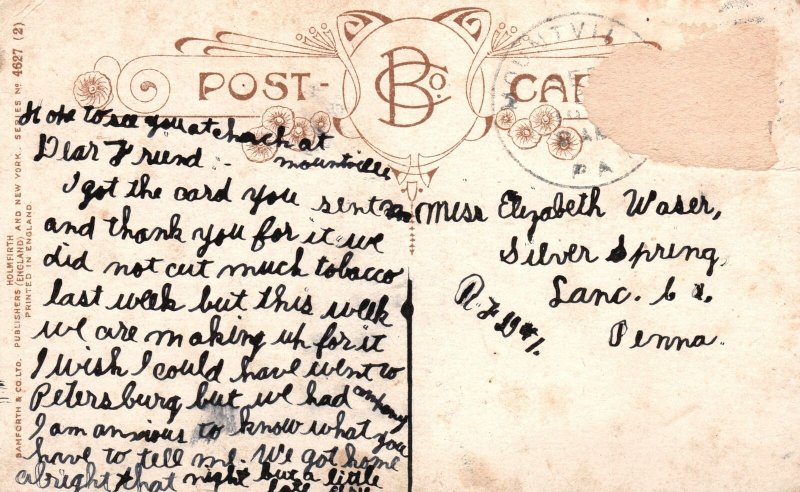 POST CARD
B Co.
MOUNTVILLE
8 A
PA
BAMFORTH & CO. LTD. PUBLISHERS (ENGLAND) AND NEW YORK. SERIES No 4627 (2)
HOLMFIRTH
PRINTED IN ENGLAND.
Hope to see you at church at
mountville
Dear Friend -
I got the card you sent me
and thank you for it we
did not cut much tobacco
last week but this week
we are making up for it
I wish I could have went to
Petersburg but we had company
I am anxious to know what you
have to tell me. We got home
alright that night but a little
late
Miss Elizabeth Waser,
Silver Spring
Lanc. Co.
Penna.
R F D #1.